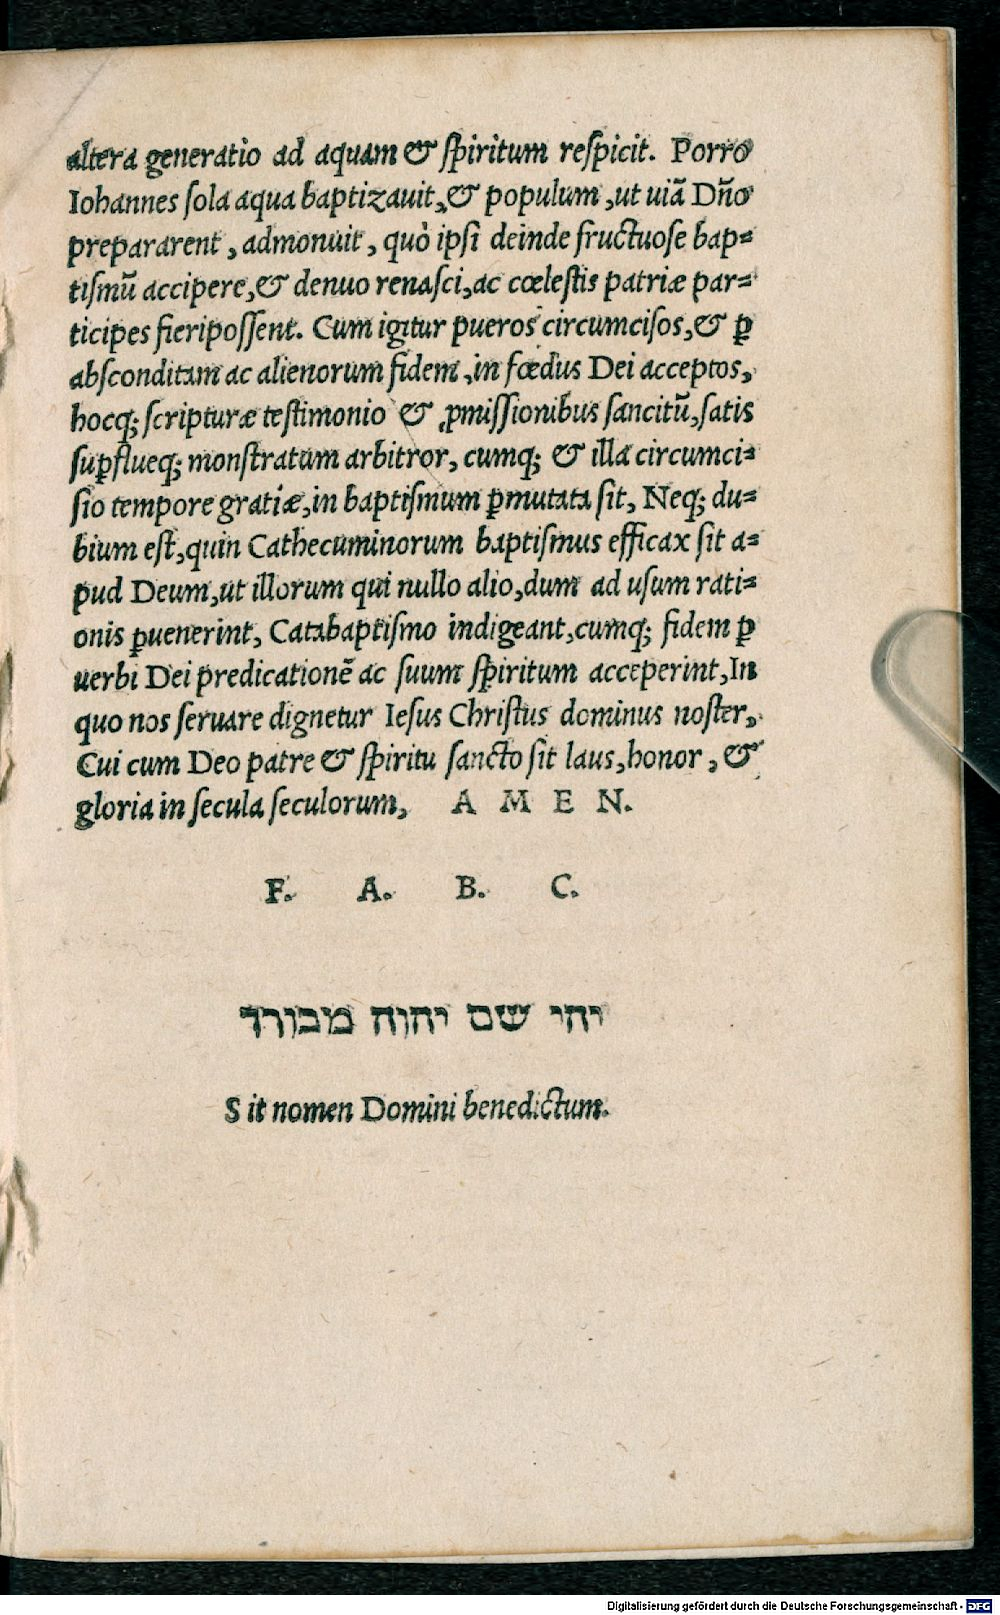 altera generatio ad aquam & spiritum respicit. Porro
Iohannes sola aqua baptizauit, & populum, ut uiã Dño
prepararent, admonuit, quò ipsi deinde fructuose bap=
tismũ accipere, & denuo renasci, ac cœlestis patriæ par=
ticipes fieripossent. Cum igitur pueros circumcisos, & ꝑ
absconditam ac alienorum fidem, in fœdus Dei acceptos,
hocq; scripturæ testimonio & ꝓmissionibus sancitũ, satis
suꝑflueq; monstratum arbitror, cumq; & illa circumci=
sio tempore gratiæ, in baptismum ꝑmutata sit, Neq; du=
bium est, quin Cathecuminorum baptismus efficax sit a=
pud Deum, ut illorum qui nullo alio, dum ad usum rati=
onis ꝑuenerint, Catabaptismo indigeant, cumq; fidem ꝑ
uerbi Dei predicationẽ ac suum spiritum acceperint, In
quo nos seruare dignetur Iesus Christus dominus noster,
Cui cum Deo patre & spiritu sancto sit laus, honor, &
gloria in secula seculorum, A M E N.
F. A. B. C.
יהי שם יהוה מבורך
Sit nomen Domini benedictum.
Digitalisierung gefördert durch die Deutsche Forschungsgemeinschaft - DFG